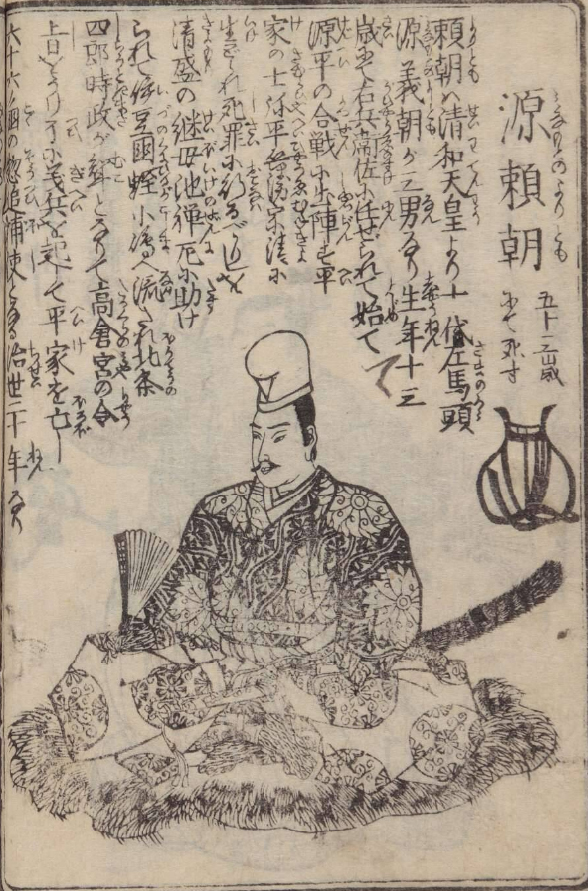 源頼朝
五十三歳
にて死す
頼朝ハ清和天皇より十代左馬頭
源義朝が三男なり生年十三
歳にて右兵衛佐に任ぜられて始て
源平の合戦に出陣す平
家の士弥平兵衛宗清に
生どられ死罪に行るべかりしを
清盛の継母池禅尼に助け
られて伊豆国蛭小島へ流され北条
四郎時政が聟となりて高倉宮の令
旨をうけ 義兵を起して平家を亡し
六十六国の惣追捕使となる治世二十年なり